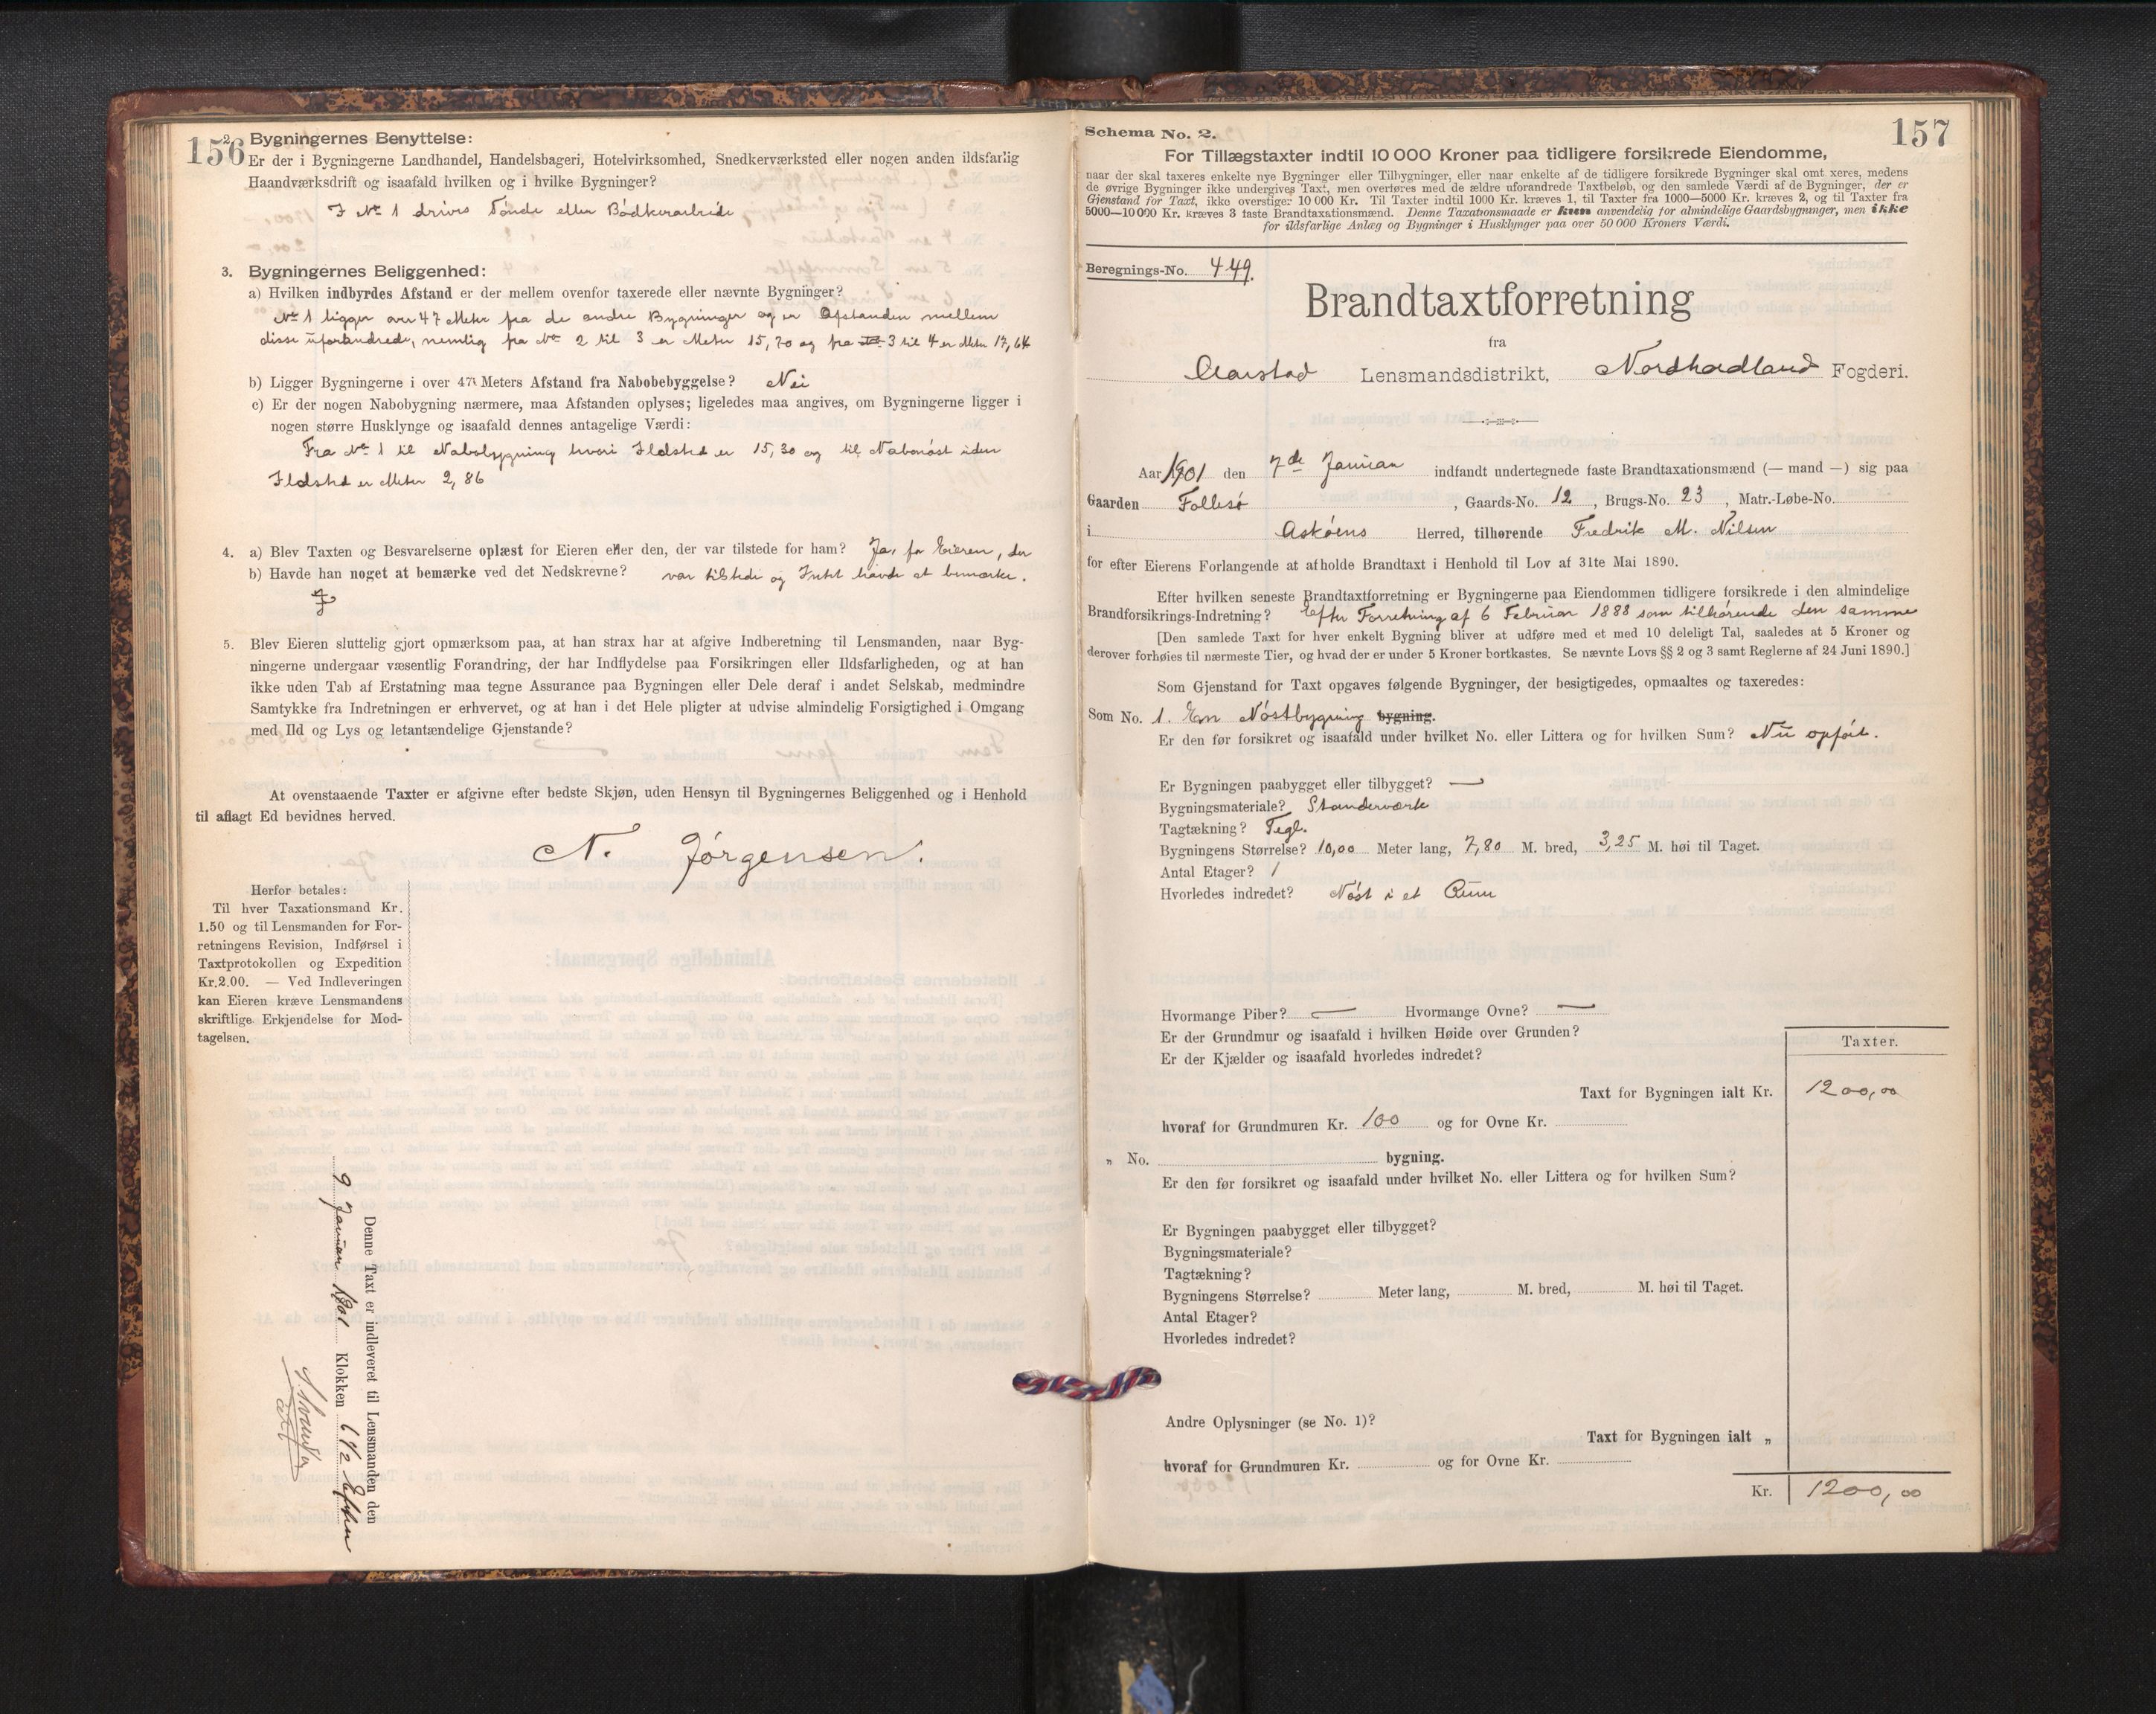 156
2. Bygningernes Benyttelse:
Er der i Bygningerne Landhandel, Handelsbageri, Hotelvirksomhed, Snedkerværksted eller nogen anden ildsfarlig
Haandværksdrift og isaafald hvilken og i hvilke Bygninger?
I No 1 drives Tønde eller Bödkerarbeide
3. Bygningernes Beliggenhed:
a) Hvilken indbyrdes Afstand er der mellem ovenfor taxerede eller nævnte Bygninger?
No 1 ligger over 47 Meter fra de andre Bygninger og er Afstanden mellem
disse uforandrede, nemlig fra No 2 til 3 er Meter 15,70 og fra 3 til 4 er Meter 17,64
b) Ligger Bygningerne i over 47 Meters Afstand fra Nabobebyggelse? Nei
c) Er der nogen Nabobygning nærmere, maa Afstanden oplyses; ligeledes maa angives, om Bygningerne ligger i
nogen større Husklynge og isaafald dennes antagelige Værdi:
Fra No 1 til Nabobygning hvori Ildsted er 15,30 og til Nabonöst uden
Ildsted er Meter 2,86
4. a) Blev Taxten og Besvarelserne oplæst for Eieren eller den, der var tilstede for ham? Ja, for Eieren, der
b) Havde han noget at bemærke ved det Nedskrevne? var tilstede og Intet havde at bemærke.
5. Blev Eieren sluttelig gjort opmærksom paa, at han strax har at afgive Indberetning til Lensmanden, naar Byg-
ningerne undergaar væsentlig Forandring, der har Indflydelse paa Forsikringen eller Ildsfarligheden, og at han
ikke uden Tab af Erstatning maa tegne Assurance paa Bygningen eller Dele deraf i andet Selskab, medmindre
Samtykke fra Indretningen er erhvervet, og at han i det Hele pligter at udvise almindelig Forsigtighed i Omgang
med Ild og Lys og letantændelige Gjenstande?
At ovenstaaende Taxter er afgivne efter bedste Skjøn, uden Hensyn til Bygningernes Beliggenhed og i Henhold
til aflagt Ed bevidnes herved.
N. Jörgensen.
Herfor betales:
Til hver Taxationsmand Kr.
1.50 og til Lensmanden for For-
retningens Revision, Indførsel i
Taxtprotokollen og Expedition
Kr.2.00. — Ved Indleveringen
kan Eieren kræve Lensmandens
skriftlige Erkjendelse for Mod-
tagelsen.
Denne Taxt er indleveret til Lensmanden den
9 Januar 1901 Klokken 6 1/2 Eften
157
Schema No. 2.
For Tillægstaxter indtil 10 000 Kroner paa tidligere forsikrede Eiendomme,
naar der skal taxeres enkelte nye Bygninger eller Tilbygninger, eller naar enkelte af de tidligere forsikrede Bygninger skal omt xeres, medens
de øvrige Bygninger ikke undergives Taxt, men overføres med de ældre uforandrede Taxtbeløb, og den samlede Værdi af de Bygninger, der er
Gjenstand for Taxt, ikke overstiger 10 000 Kr. Til Taxter indtil 1000 Kr. kræves 1, til Taxter fra 1000—5000 Kr. kræves 2, og til Taxter fra
5000—10 000 Kr. kræves 3 faste Brandtaxationsmænd. Denne Taxationsmaade er kun anvendelig for almindelige Gaardsbygninger, men ikke
for ildsfarlige Anlæg og Bygninger i Husklynger paa over 50 000 Kroners Værdi.
Beregnings-No. 449.
Brandtaxtforretning
fra
Aarstad Lensmandsdistrikt, Nordhordland Fogderi.
Aar 1901 den 7de Januar indfandt undertegnede faste Brandtaxationsmænd (— mand —) sig paa
Gaarden Follesö, Gaards-No. 12, Brugs-No. 23, Matr.-Løbe-No.
i Asköens Herred, tilhørende Fredrik M. Nilsen
for efter Eierens Forlangende at afholde Brandtaxt i Henhold til Lov af 31te Mai 1890.
Efter hvilken seneste Brandtaxtforretning er Bygningerne paa Eiendommen tidligere forsikrede i den almindelige
Brandforsikrings-Indretning? Efter Forretning af 6 Februar 1888 som tilhörende den samme
[Den samlede Taxt for hver enkelt Bygning bliver at udføre med et med 10 deleligt Tal, saaledes at 5 Kroner og
derover forhøies til nærmeste Tier, og hvad der er under 5 Kroner bortkastes. Se nævnte Lovs §§ 2 og 3 samt Reglerne af 24 Juni 1890.]
Som Gjenstand for Taxt opgaves følgende Bygninger, der besigtigedes, opmaaltes og taxeredes:
Som No. 1. En Nöstbygning bygning.
Er den før forsikret og isaafald under hvilket No. eller Littera og for hvilken Sum? Nu opfört.
Er Bygningen paabygget eller tilbygget? —
Bygningsmateriale? Standerværk
Tagtækning? Tegl.
Bygningens Størrelse? 10,00 Meter lang, 7,80 M. bred, 3,25 M. høi til Taget.
Antal Etager? 1
Hvorledes indredet? Nöst i et Rum
Hvormange Piber? — Hvormange Ovne? —
Er der Grundmur og isaafald i hvilken Høide over Grunden?
Er der Kjælder og isaafald hvorledes indredet?
Taxter.
Taxt for Bygningen ialt Kr. 1200,00
hvoraf for Grundmuren Kr. 100 og for Ovne Kr.
„ No. bygning.
Er den før forsikret og isaafald under hvilket No. eller Littera og for hvilken Sum?
Er Bygningen paabygget eller tilbygget?
Bygningsmateriale?
Tagtækning?
Bygningens Størrelse? Meter lang, M. bred, M. høi til Taget.
Antal Etager?
Hvorledes indredet?
Andre Oplysninger (se No. 1)?
Taxt for Bygningen ialt „
hvoraf for Grundmuren Kr. og for Ovne Kr.
Kr. 1200,00